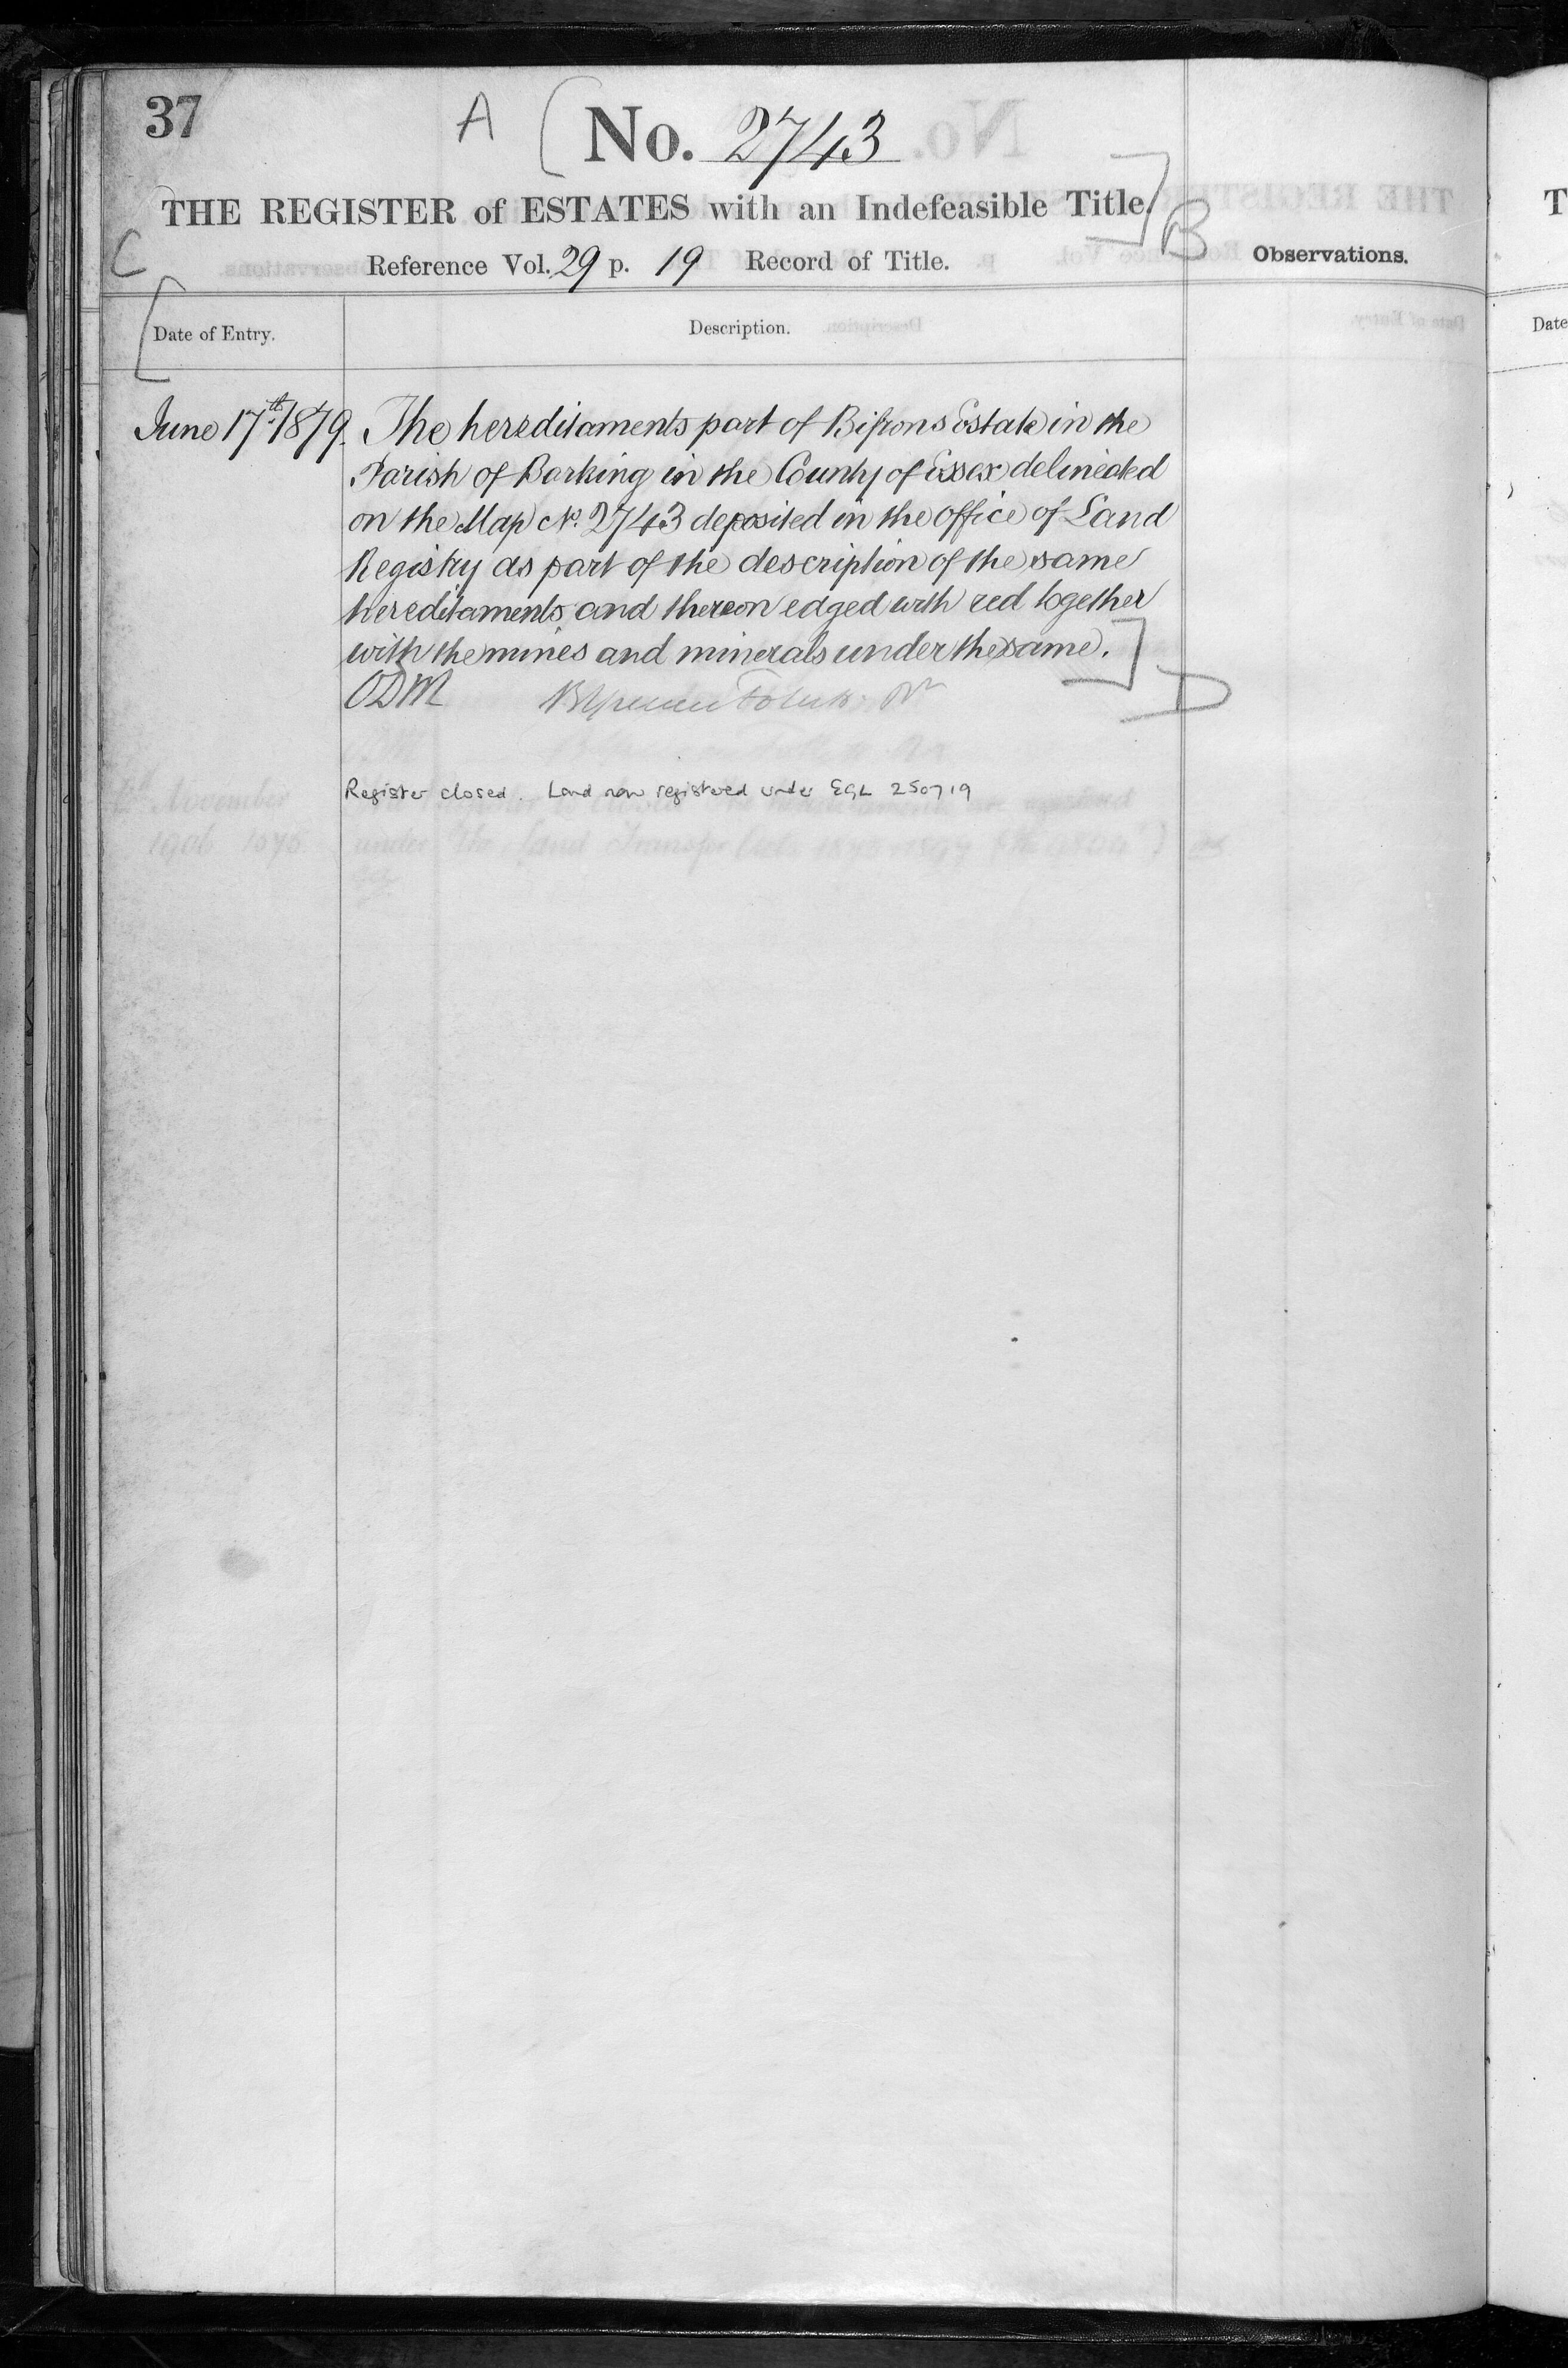 37
A
No. 2743
THE REGISTER of ESTATES with an Indefeasible Title.
B
C
Reference Vol. 29 p. 19 Record of Title.
Observations.
Date of Entry.
Description.
June 17th 1879. The hereditaments part of Bifrons Estate in the
Parish of Barking in the County of Essex delineated
on the Map No. 2743 deposited in the office of Land
Registry as part of the description of the same
hereditaments and thereon edged with red together
with the mines and minerals under the same.
D
ODM
Register closed. Land now registered under EGL 250719
T
Date